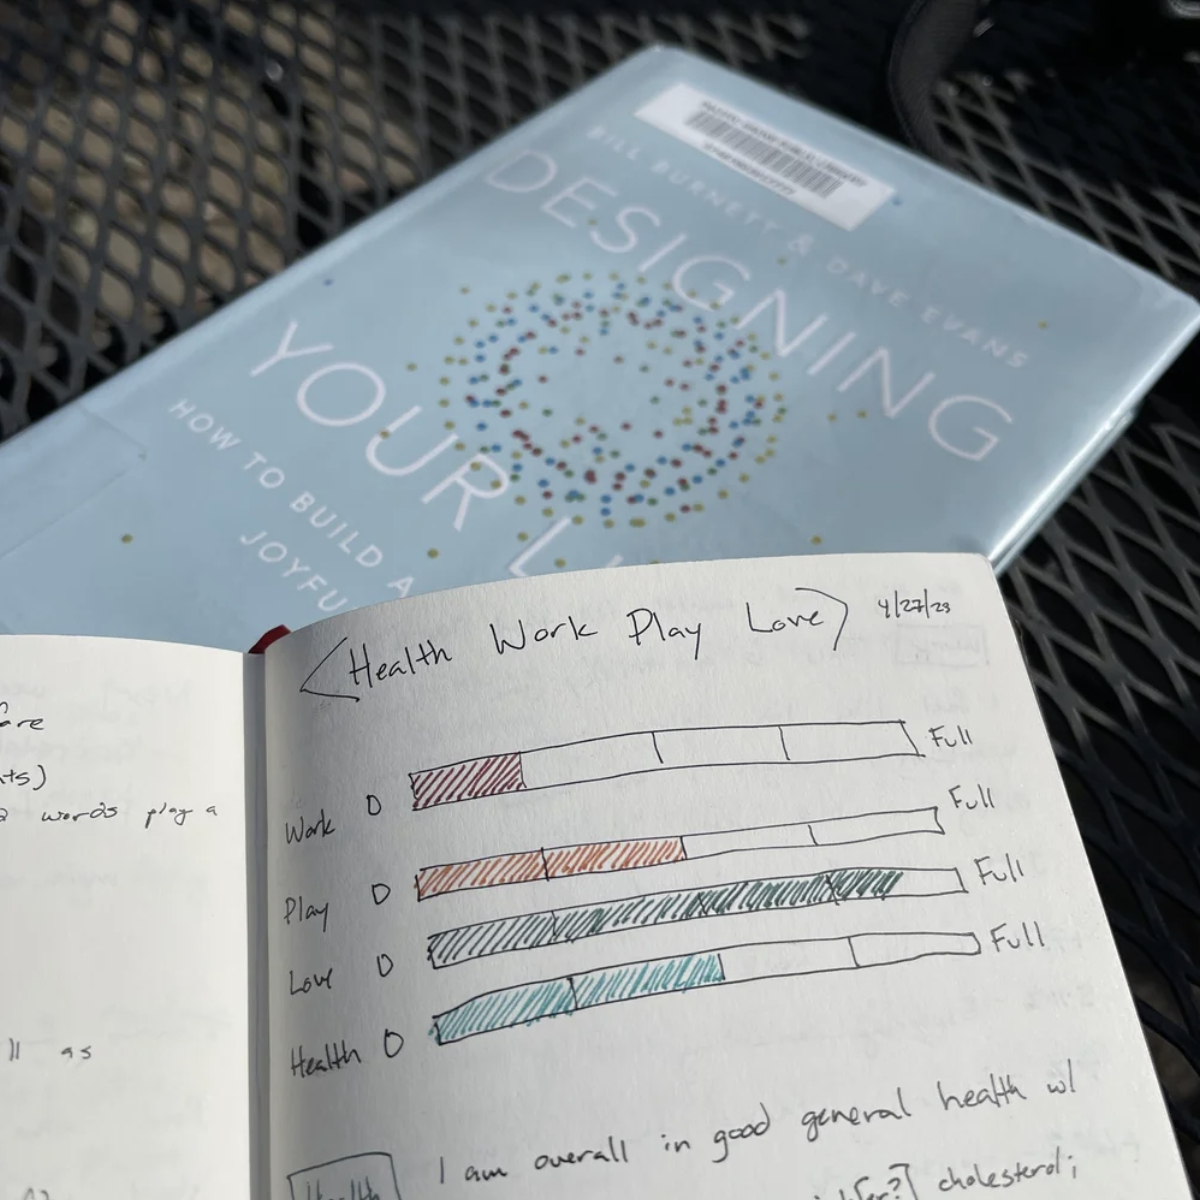 BILL BURNETT & DAVE EVANS
DESIGNING
YOUR
HOW TO BUILD A
JOYFU
<Health Work Play Love> 4/27/23
Work 0 Full
Play 0 Full
Love 0 Full
Health 0 Full
I am overall in good general health w/
Health
cholesterol;
are
ts)
words play a
ll as